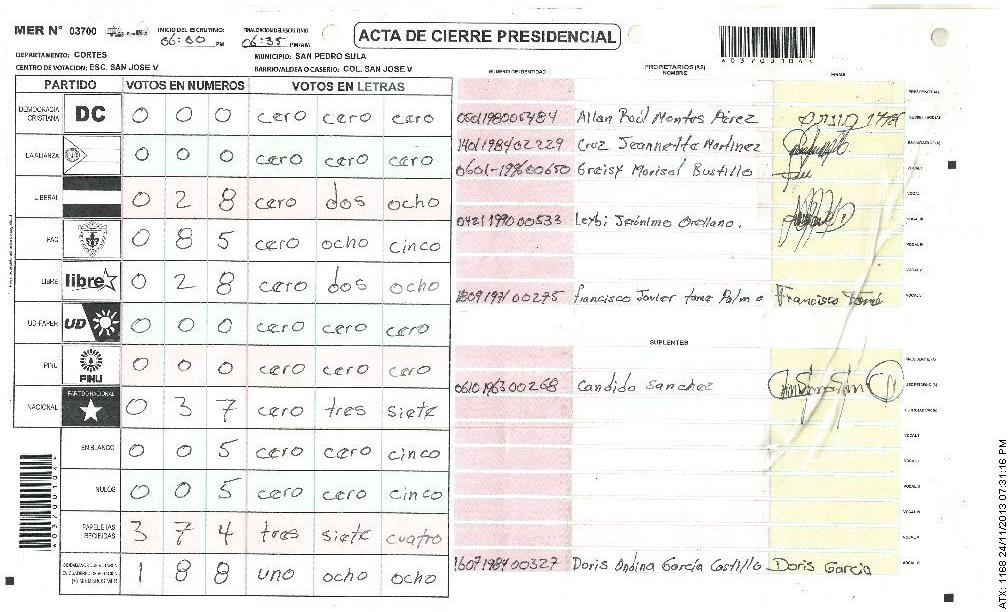 MER N° 03700 INICIO DEL ESCRUTINIO: 06:00 PM FINALIZACION DEL ESCRUTINIO 06:35 PM/AM
ACTA DE CIERRE PRESIDENCIAL
DEPARTAMENTO: CORTES MUNICIPIO: SAN PEDRO SULA
CENTRO DE VOTACION: ESC. SAN JOSE V BARRIO/ALDEA O CASERIO: COL. SAN JOSE V
PARTIDO VOTOS EN NUMEROS VOTOS EN LETRAS
DEMOCRACIA CRISTIANA DC 0 0 0 cero cero cero
LA ALIANZA 0 0 0 cero cero cero
LIBERAL 0 2 8 cero dos ocho
PAC 0 8 5 cero ocho cinco
LIBRE libre 0 2 8 cero dos ocho
UD-FAPER UD 0 0 0 cero cero cero
PINU PINU 0 0 0 cero cero cero
NACIONAL PARTIDO NACIONAL 0 3 7 cero tres siete
EN BLANCO 0 0 5 cero cero cinco
NULOS 0 0 5 cero cero cinco
PAPELETAS RECIBIDAS 3 7 4 tres siete cuatro
1 8 8 uno ocho ocho
NUMERO DE IDENTIDAD PROPIETARIOS (AS) NOMBRE FIRMA
Allan Raúl Montes Pérez
1401198402229 Cruz Jeannetta Martinez
0601-199600650 Greisy Marisol Bustillo
0421199000533 Leybi Jerónimo Orellano.
Francisco Javier tome Palma Francisco Tomé
SUPLENTES
0610196300268 Candido Sanchez
1607198900327 Doris Ondina García Castillo Doris Garcia
A03700104
ATX: 1168 24/11/2013 07:31:16 PM